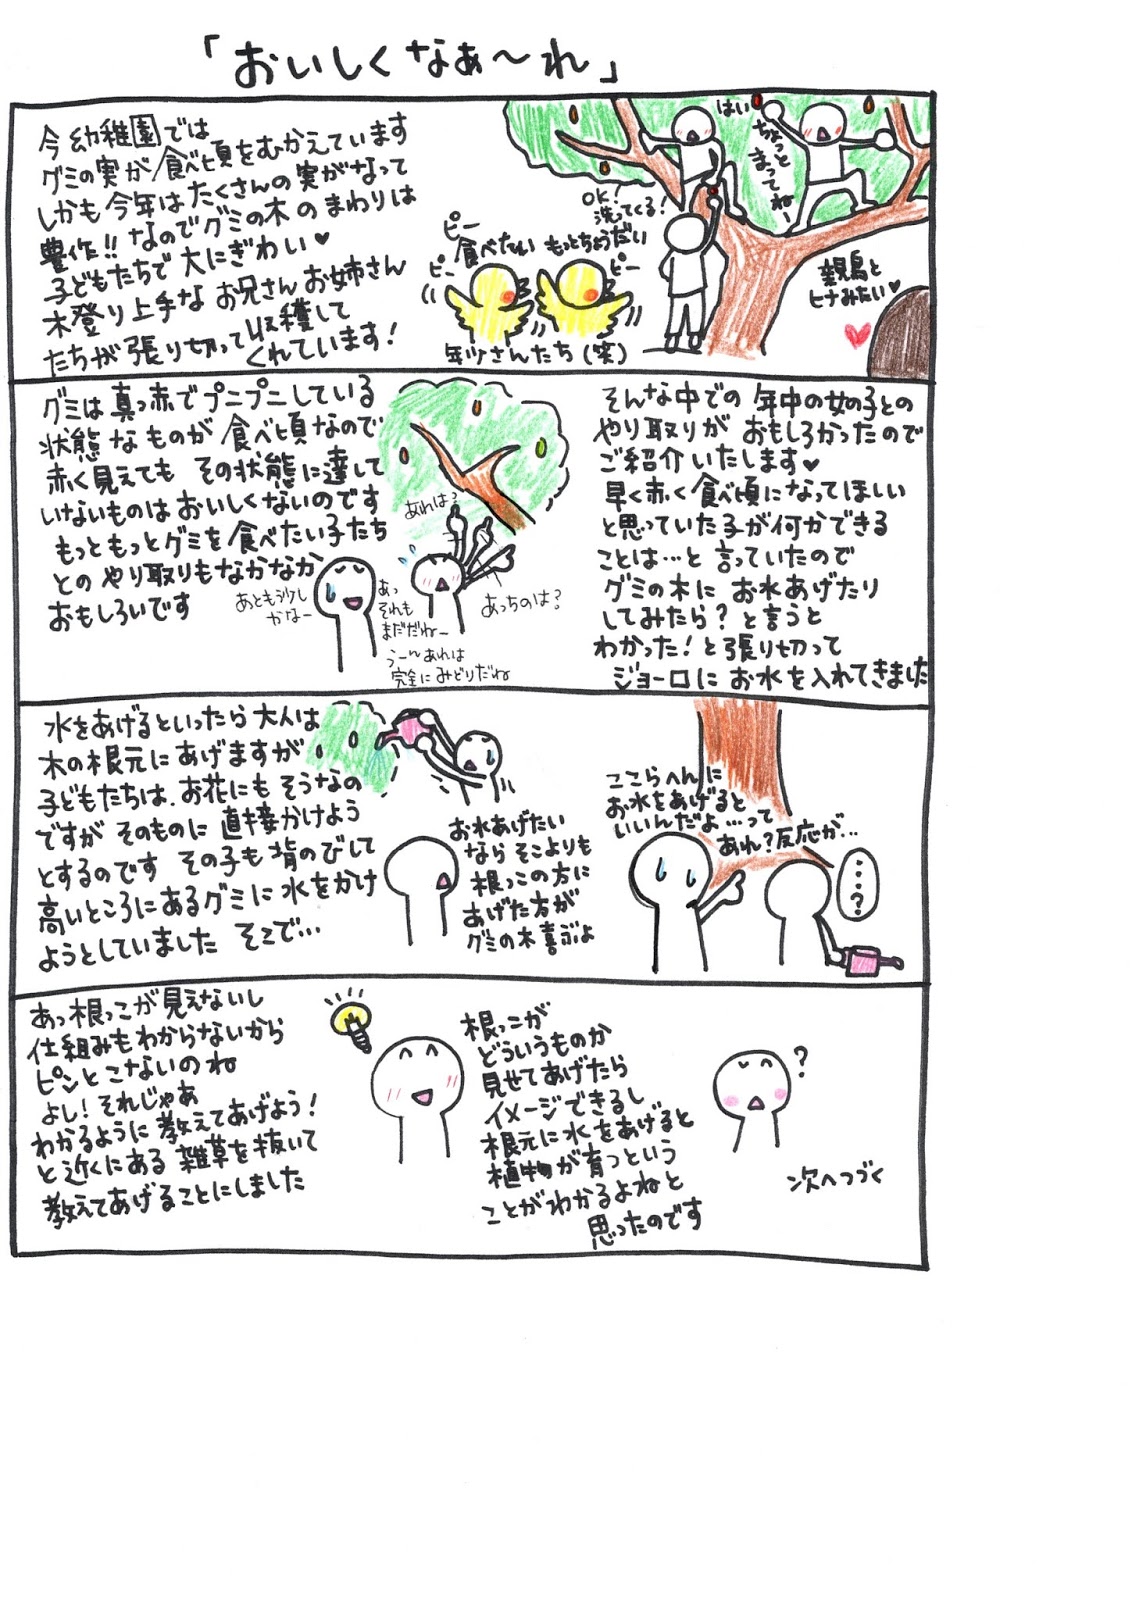 「おいしくなぁ〜れ」
今幼稚園では
グミの実が食べ頃をむかえています
しかも今年はたくさんの実がなって
豊作!! なのでグミの木のまわりは
子どもたちで大にぎわい♥
木登り上手なお兄さんお姉さん
たちが張り切って収穫して
くれています!
はい
ちょっと
まってねー
OK!
洗ってくる!
ピー
食べたい もっとちょうだい
ピー
ピー
年少さんたち(笑)
親鳥と
ヒナみたい♥
グミは真っ赤でプニプニしている
状態なものが食べ頃なので
赤く見えても その状態に達して
いないものはおいしくないのです
もっともっとグミを食べたい子たち
とのやり取りもなかなか
おもしろいです
あともう少し
かなー
あれはっ
あっちのは?
あっ
それも
まだだねー
うーんあれは
完全にみどりだね
そんな中での年中の女の子との
やり取りがおもしろかったので
ご紹介いたします♥
早く赤く食べ頃になってほしい
と思っていた子が何かできる
ことは…と言っていたので
グミの木にお水あげたり
してみたら?と言うと
わかった!と張り切って
ジョーロにお水を入れてきました
水をあげるといったら大人は
木の根元にあげますが
子どもたちは、お花にもそうなの
ですが そのものに直接かけよう
とするのです その子も背のびして
高いところにあるグミに水をかけ
ようとしていました そこで…
お水あげたい
ならそこよりも
根っこの方に
あげた方が
グミの木喜ぶよ
ここらへんに
お水をあげると
いいんだよ…って
あれ?反応が…
…?
あっ根っこが見えないし
仕組みもわからないから
ピンとこないのね
よし!それじゃあ
わかるように教えてあげよう!
と近くにある雑草を抜いて
教えてあげることにしました
根っこが
どういうものか
見せてあげたら
イメージできるし
根元に水をあげると
植物が育つという
ことがわかるよねと
思ったのです
?
次へつづく